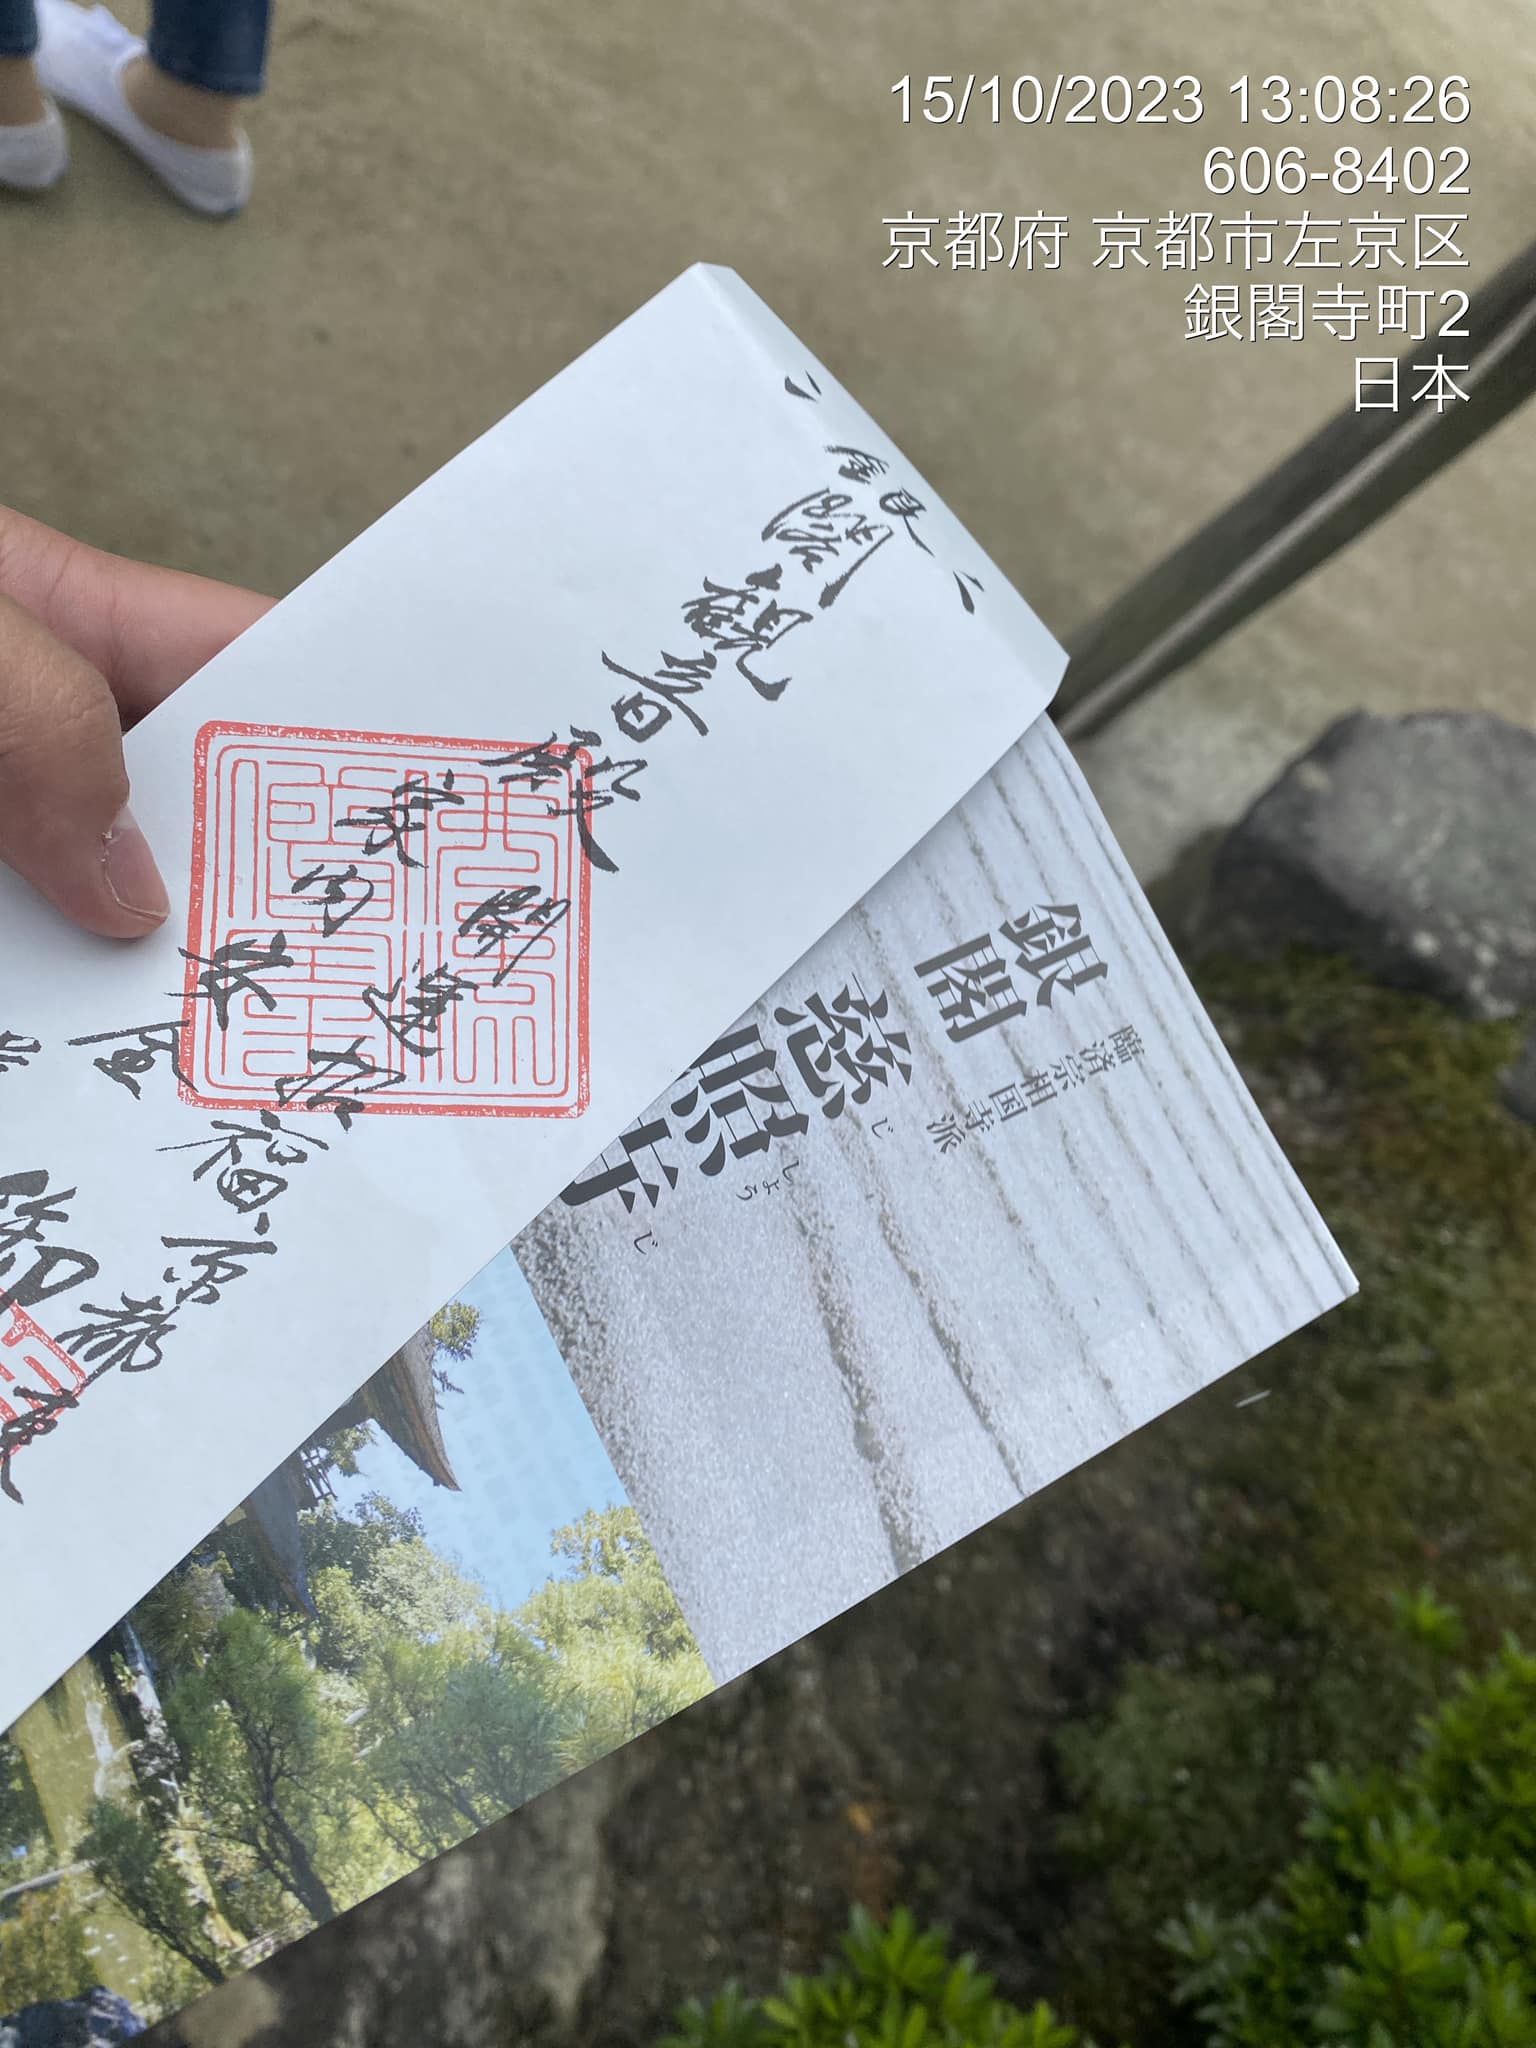 15/10/2023 13:08:26
606-8402
京都府 京都市左京区
銀閣寺町2
日本
銀閣観音殿
開運招福
京都
家内安全
臨済宗相国寺派
銀閣
慈照寺
じしょうじ